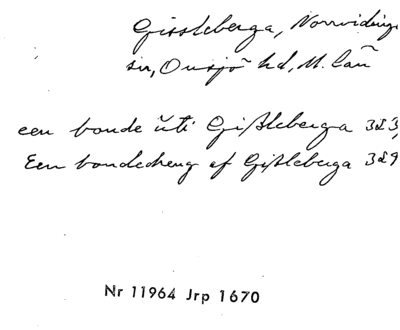 Gissleberga, Norrvidinge
sn, Onsjö hd, M. län
een bonde uti Gißleberga 323,
Een bondedreng af Gißleberga 329
Nr 11964 Jrp 1670